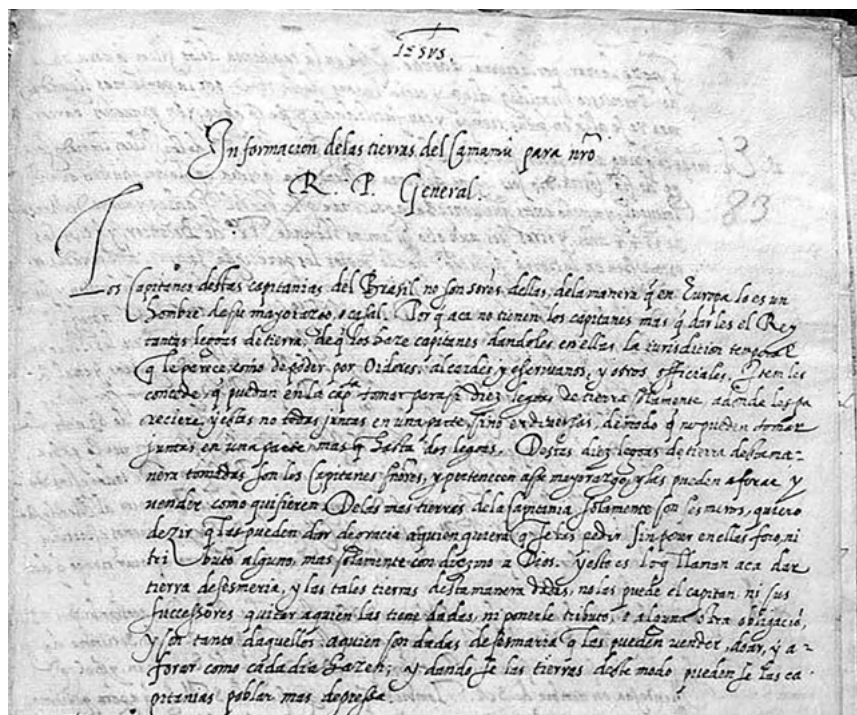 IESVS
Informacion delas tierras del Camamu para nrõ
R. P. General.
Los Capitanes destas capitanias del Brasil no son sores dellas, dela manera q̃ en Europa lo es un
hombre de su mayorazgo, o casal. Por q̃ aca no tienen los capitanes mas q̃ darles el Rey
tantas legoas de tierra, de q̃ los haze capitanes dandoles en ellas la iurisdicion temporal
q̃ le parece, como de poder por Oidores, alcaides y escrivanos, y otros officiales. Item les
concede, q̃ puedan en la cap.ia tomar para si diez legoas de tierra solamente, adonde les pa
reciere, y estas no todas juntas en una parte, sino en diversas, de modo q̃ no pueden tomar
juntas en una parte mas q̃ hasta dos legoas. Destas diez legoas de tierra desta ma-
nera tomadas son los Capitanes sñores, y pertenecen a su mayorazgo, y las pueden aforar y
vender como quisieren. Delas mas tierras dela Capitania solamente son sesmeros, quiero
dezir q̃ las pueden dar de gracia a quien quiera q̃ se las pedir sin poner en ellas foro, ni
tributo alguno, mas solamente con diezmo a Dios. y este es lo q̃ llaman aca dar
tierra de sesmeria, y las tales tierras desta manera dadas, no las puede el capitan ni sus
successores quitar a quien las tiene dadas, ni ponerle tributo, o alguna otra obligació,
y son tanto daquellos a quien son dadas de sesmaria q̃ las pueden vender, doar, y a-
forar como cada dia hazen; y dandose las tierras deste modo pueden se las ca
pitanias poblar mas depressa.
83